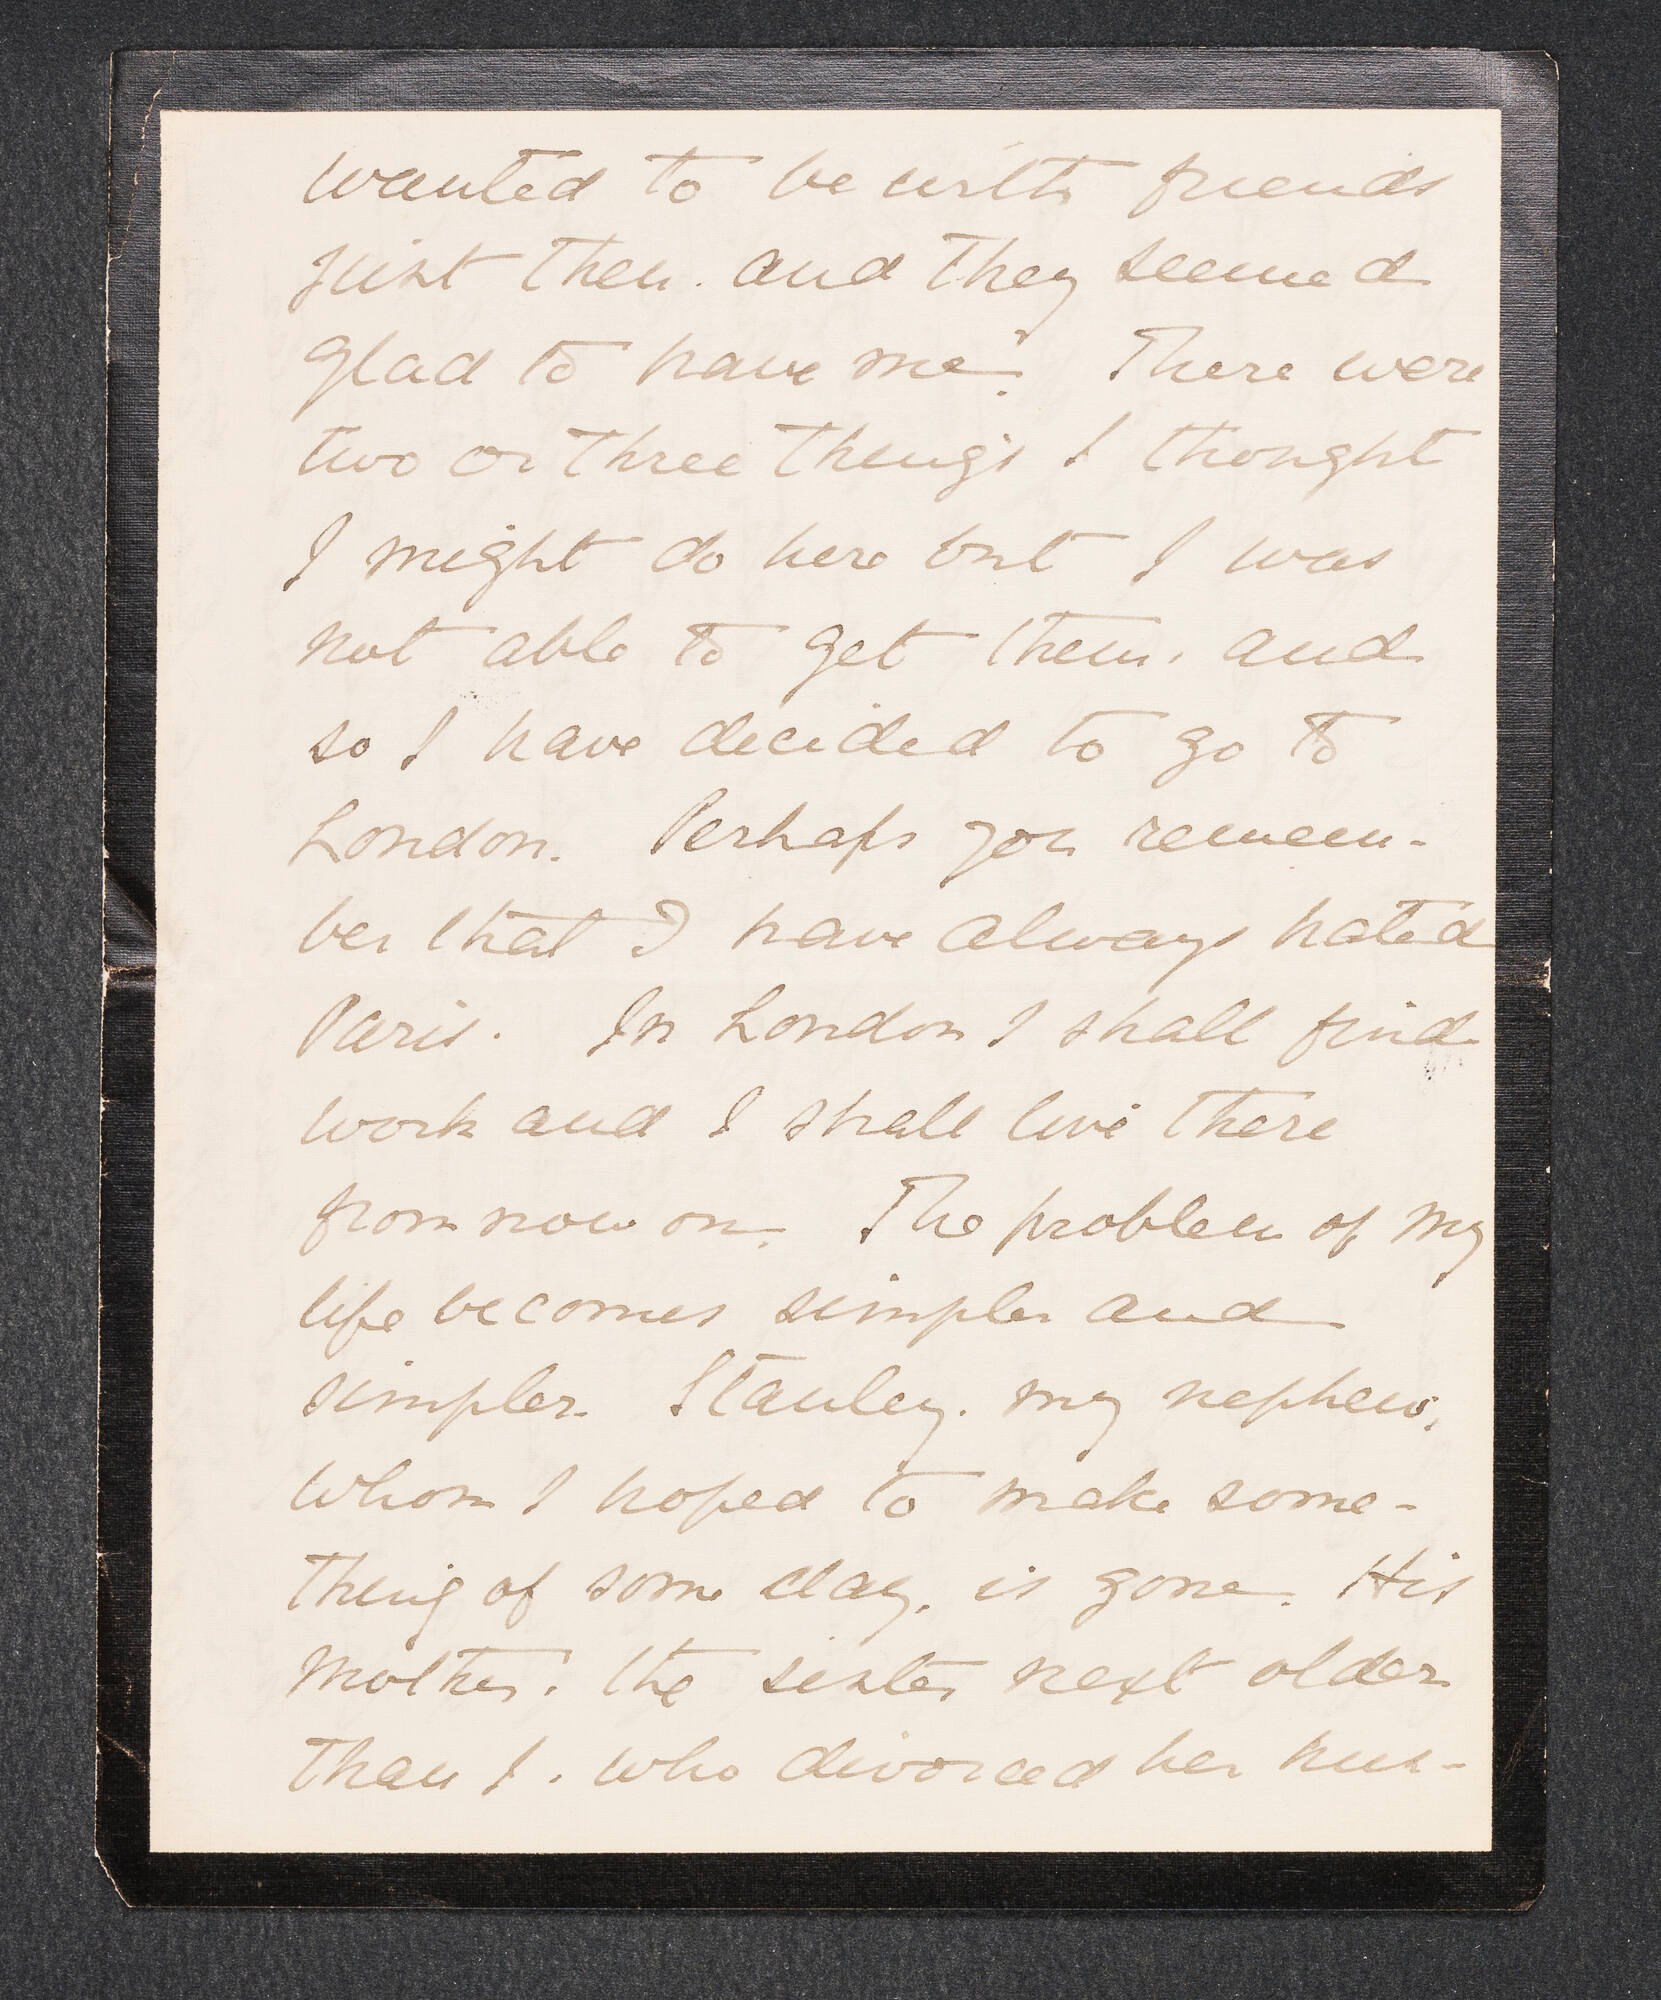 wanted to be with friends
just then. and they seemed
glad to have me. There were
two or three things I thought
I might do here but I was
not able to get them. and
so I have decided to go to
London. Perhaps you remem-
ber that I have always hated
Paris. In London I shall find
work and I shall live there
from now on. The problem of my
life becomes simpler and
simpler. Stanley. my nephew,
whom I hoped to make some-
thing of some day. is gone. His
mother. the sister next older
than I. who divorced her hus-